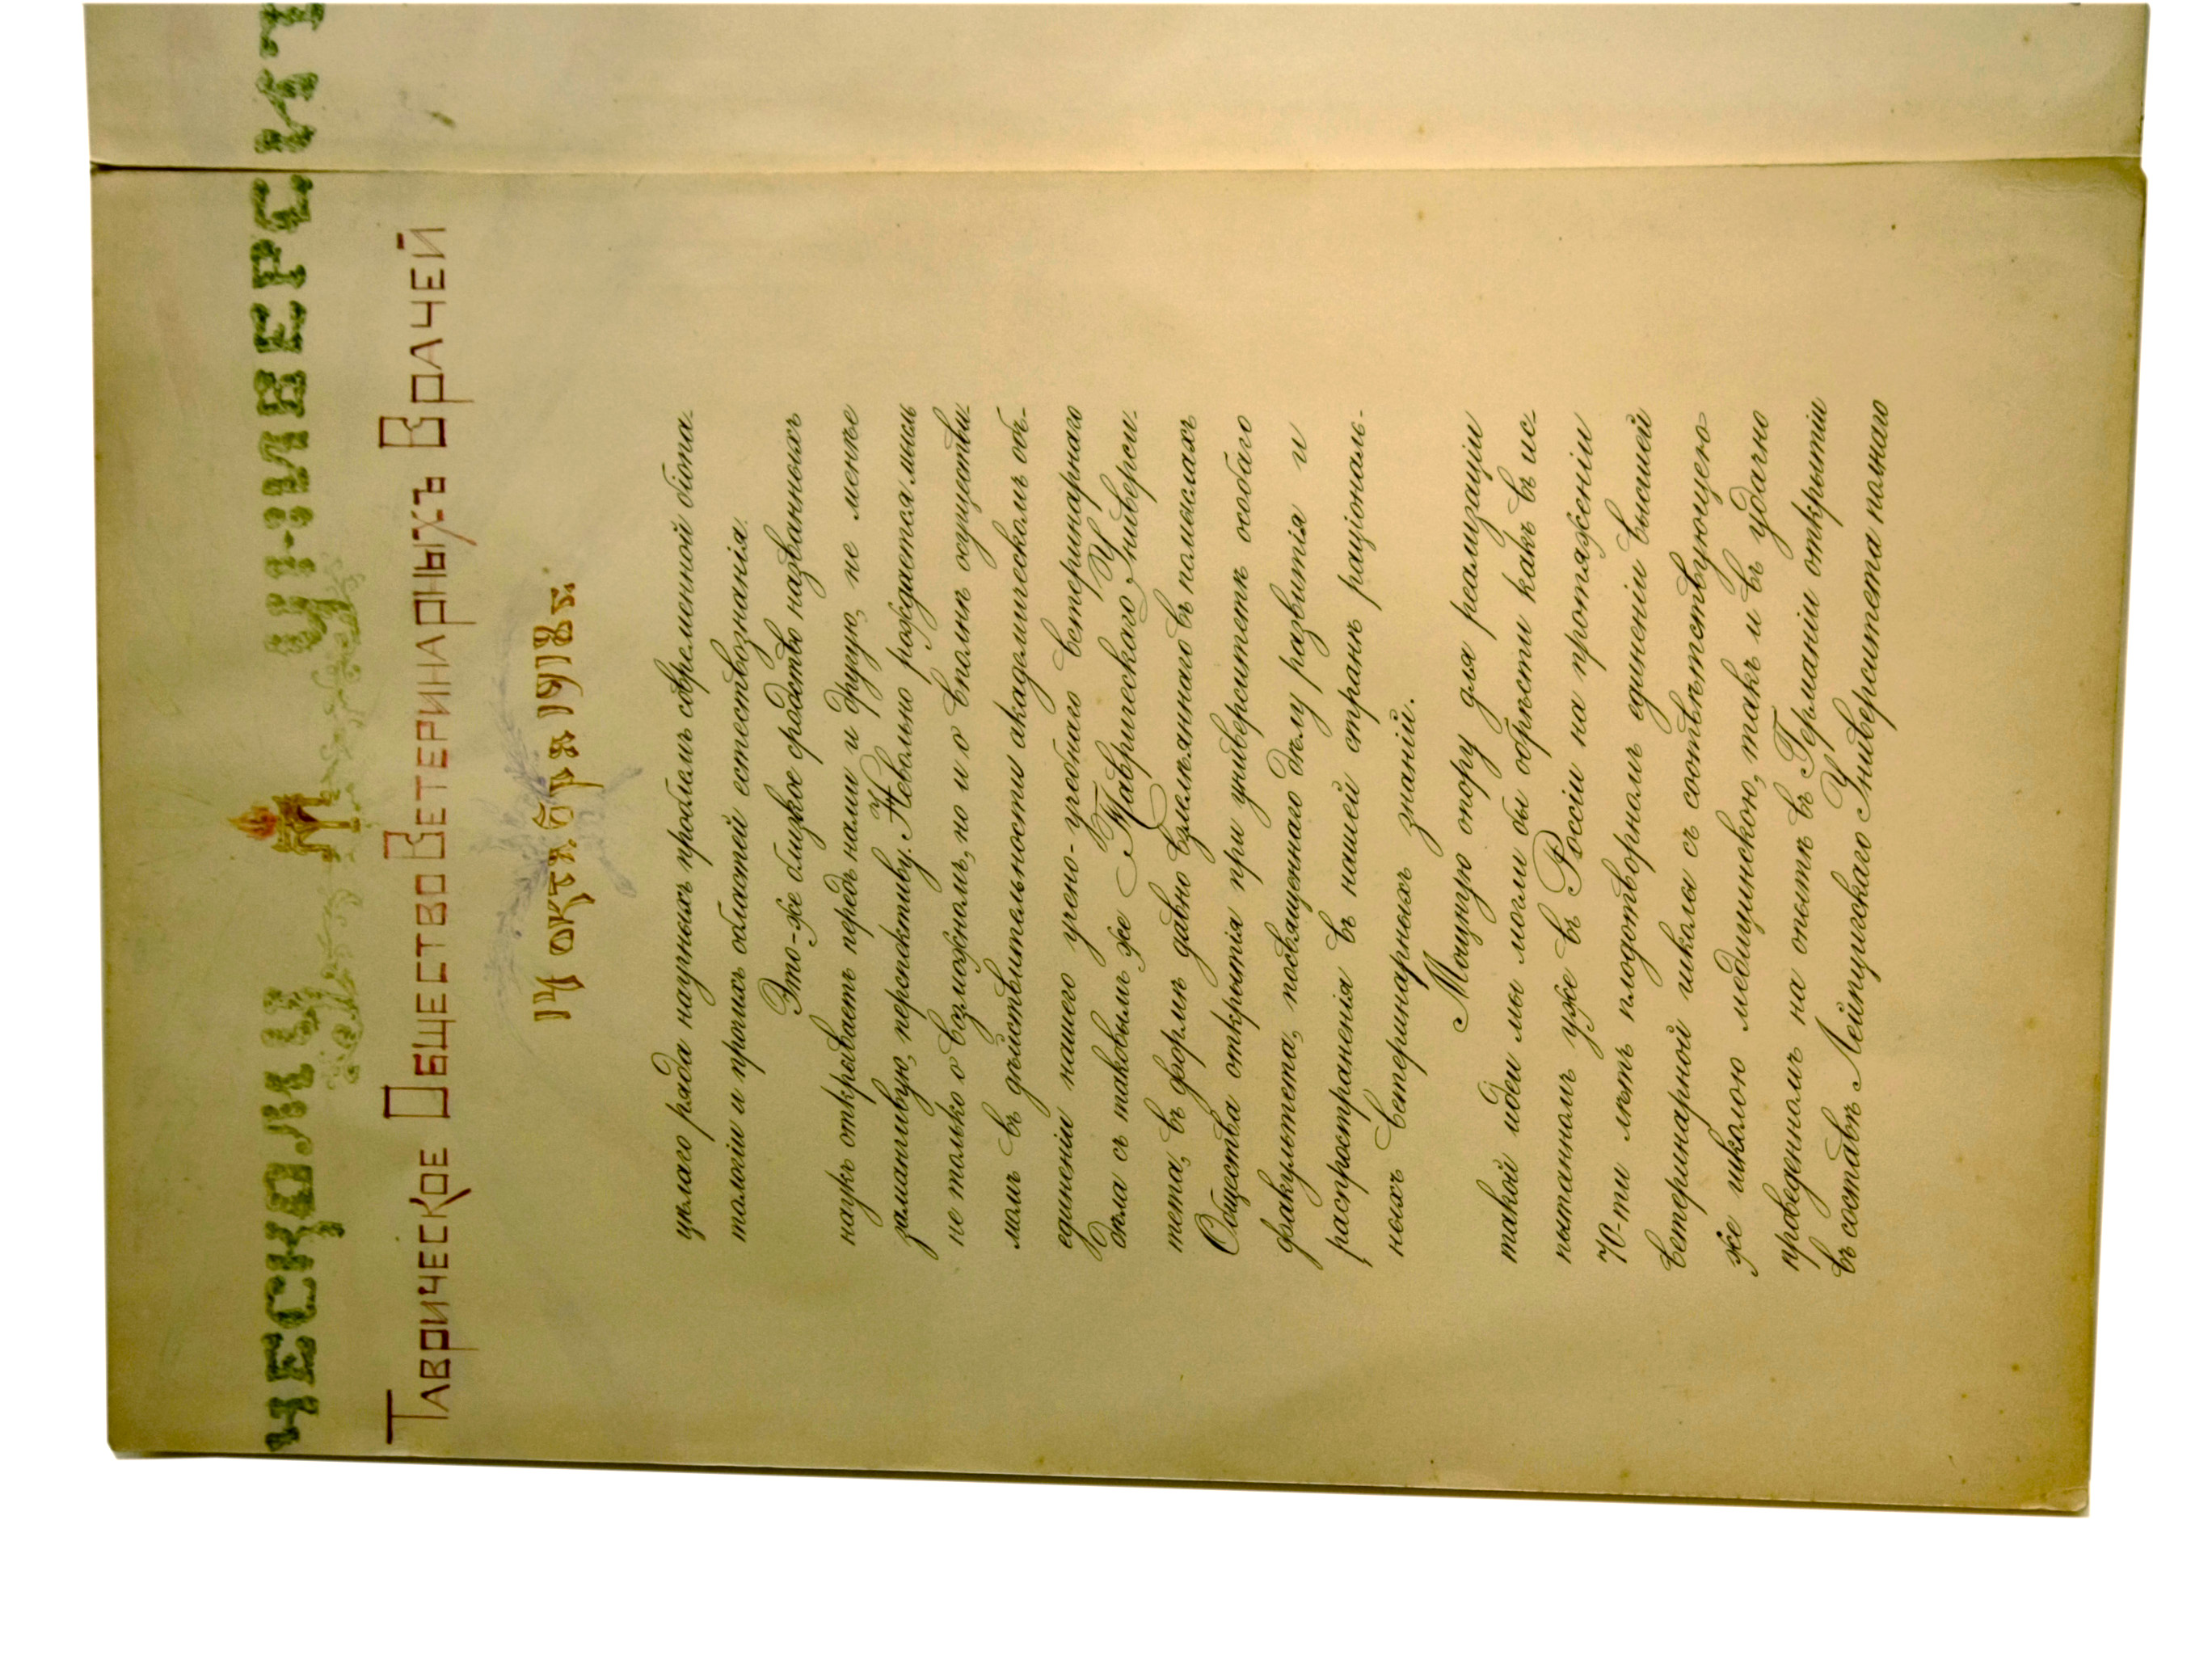 ческому Университ
Таврическое Общество Ветеринарныхъ Врачей
14 октября 1918 г.
цѣлаго ряда научныхъ проблемъ современной біопа-
тологіи и прочихъ областей естествознанія.
Это-же близкое сродство названныхъ
наукъ открываетъ передъ нами и другую, не менѣе
заманчивую, перспективу. Невольно рождается мысль
не только о возможномъ, но и о вполнѣ осуществи-
момъ въ дѣйствительности академическомъ объ-
единеніи нашего учено-учебнаго ветеринарнаго
дѣла съ таковымъ же Таврическаго Универси-
тета, въ формѣ давно взлелѣяннаго въ помыслахъ
Общества открытія при университетѣ особаго
факультета, посвященнаго дѣлу развитія и
распространенія въ нашей странѣ раціональ-
ныхъ ветеринарныхъ знаній.
Мощную опору для реализаціи
такой идеи мы могли бы обрѣсти какъ въ ис-
пытанномъ уже въ Россіи на протяженіи
70-ти лѣтъ плодотворномъ единеніи высшей
ветеринарной школы съ соотвѣтствующею
же школою медицинскою, такъ и въ удачно
проведенномъ на опытѣ въ Германіи открытіи
въ составѣ Лейпцигскаго Университета полнаго